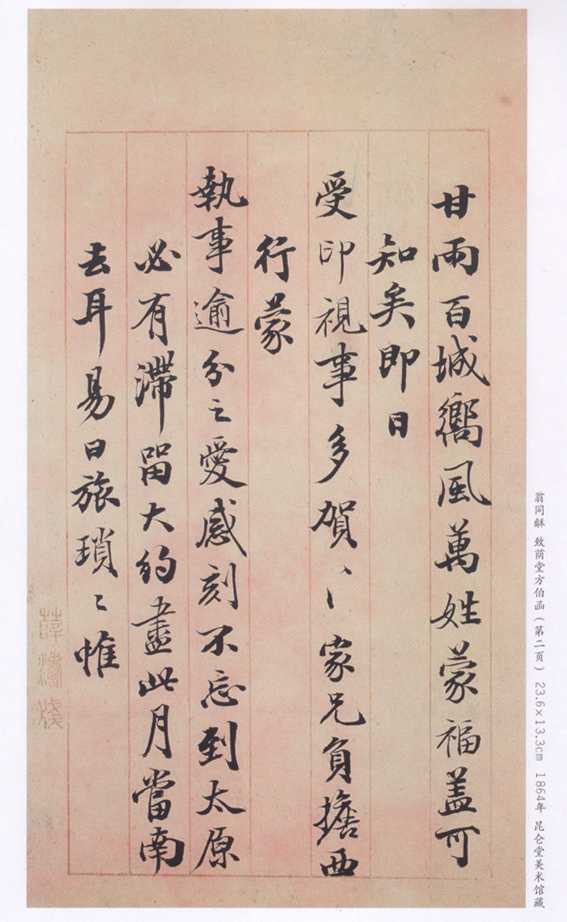 甘雨百城嚮風萬姓蒙福蓋可
知矣即日
受印視事多賀〻家兄負擔西
行蒙
執事逾分之愛感刻不忘到太原
必有滯留大約盡此月當南
去耳易曰旅瑣〻惟
翁同龢 致荫堂方伯函（第二页） 23.6×13.3cm 1864年 昆仑堂美术馆藏